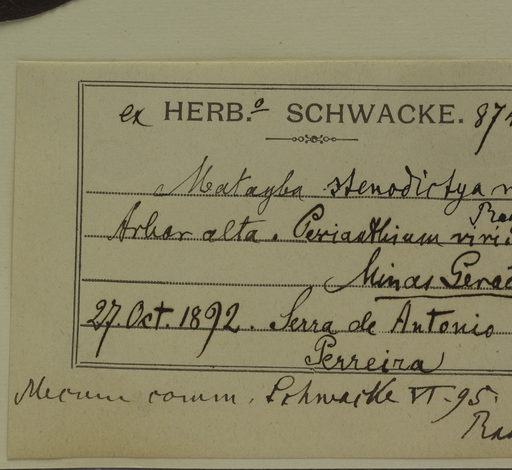 ex HERB.º SCHWACKE. 874
Matayba stenodictya n
Ra
Arbor alta. Perianthium viri
Minas Gerae
27. Oct. 1892. Serra de Antonio
Perreira
Mecum comm. Schwacke VI-95.
Ra